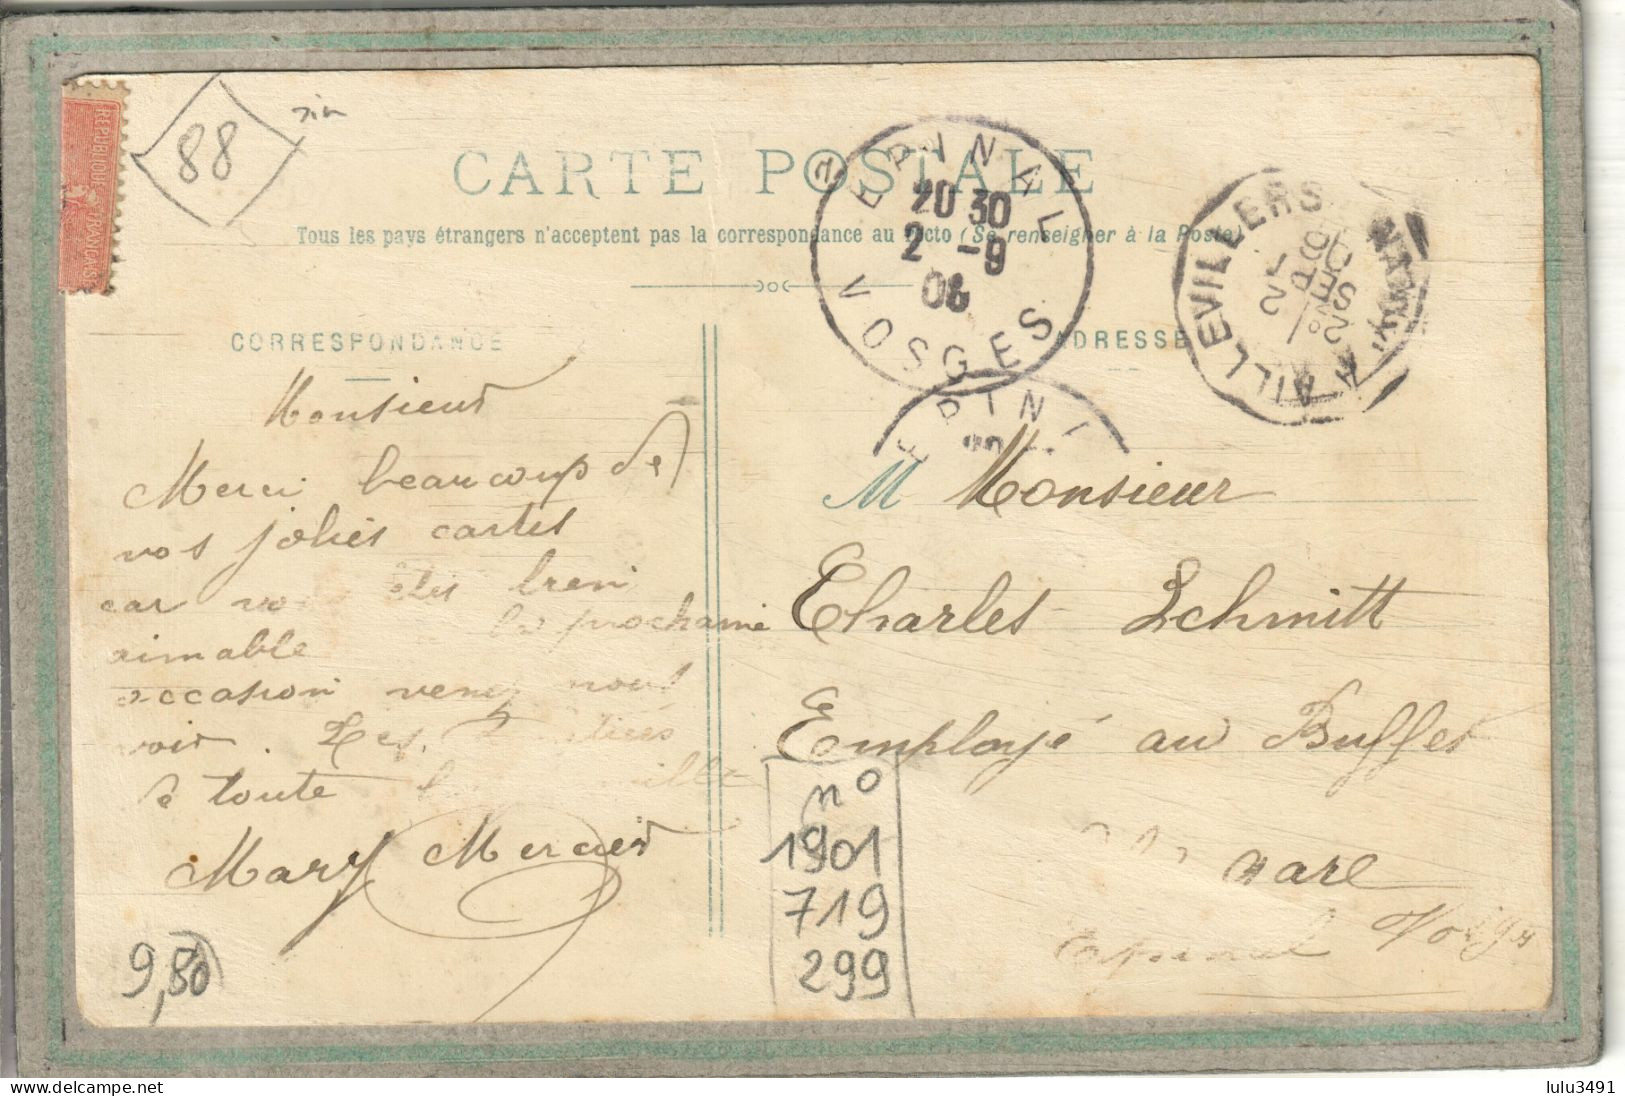 88
REPUBLIQUE FRANÇAISE
CARTE POSTALE
Tous les pays étrangers n'acceptent pas la correspondance au recto (Se renseigner à la Poste)
EPINAL
20 30
2 -9
06
VOSGES
AILLEVILLERS
2 SEPT
EPINAL
CORRESPONDANCE
ADRESSE
Monsieur
Merci beaucoup de
vos jolies cartes
car vous êtes bien
aimable la prochaine
occasion venez nous
voir . Les
de toute
Mary Mercier
M Monsieur
Charles Schmitt
Employé au Buffet
gare
Epinal Vosges
n°
1901
719
299
9,80
lulu3491